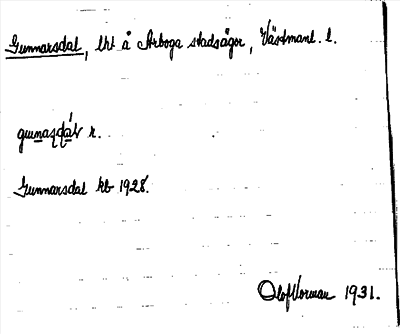 Gunnarsdal, lht å Arboga stadsägor, Västmanl. l.
gunaṣḍál r.
Gunnarsdal kb 1928.
Olof Vorman 1931.